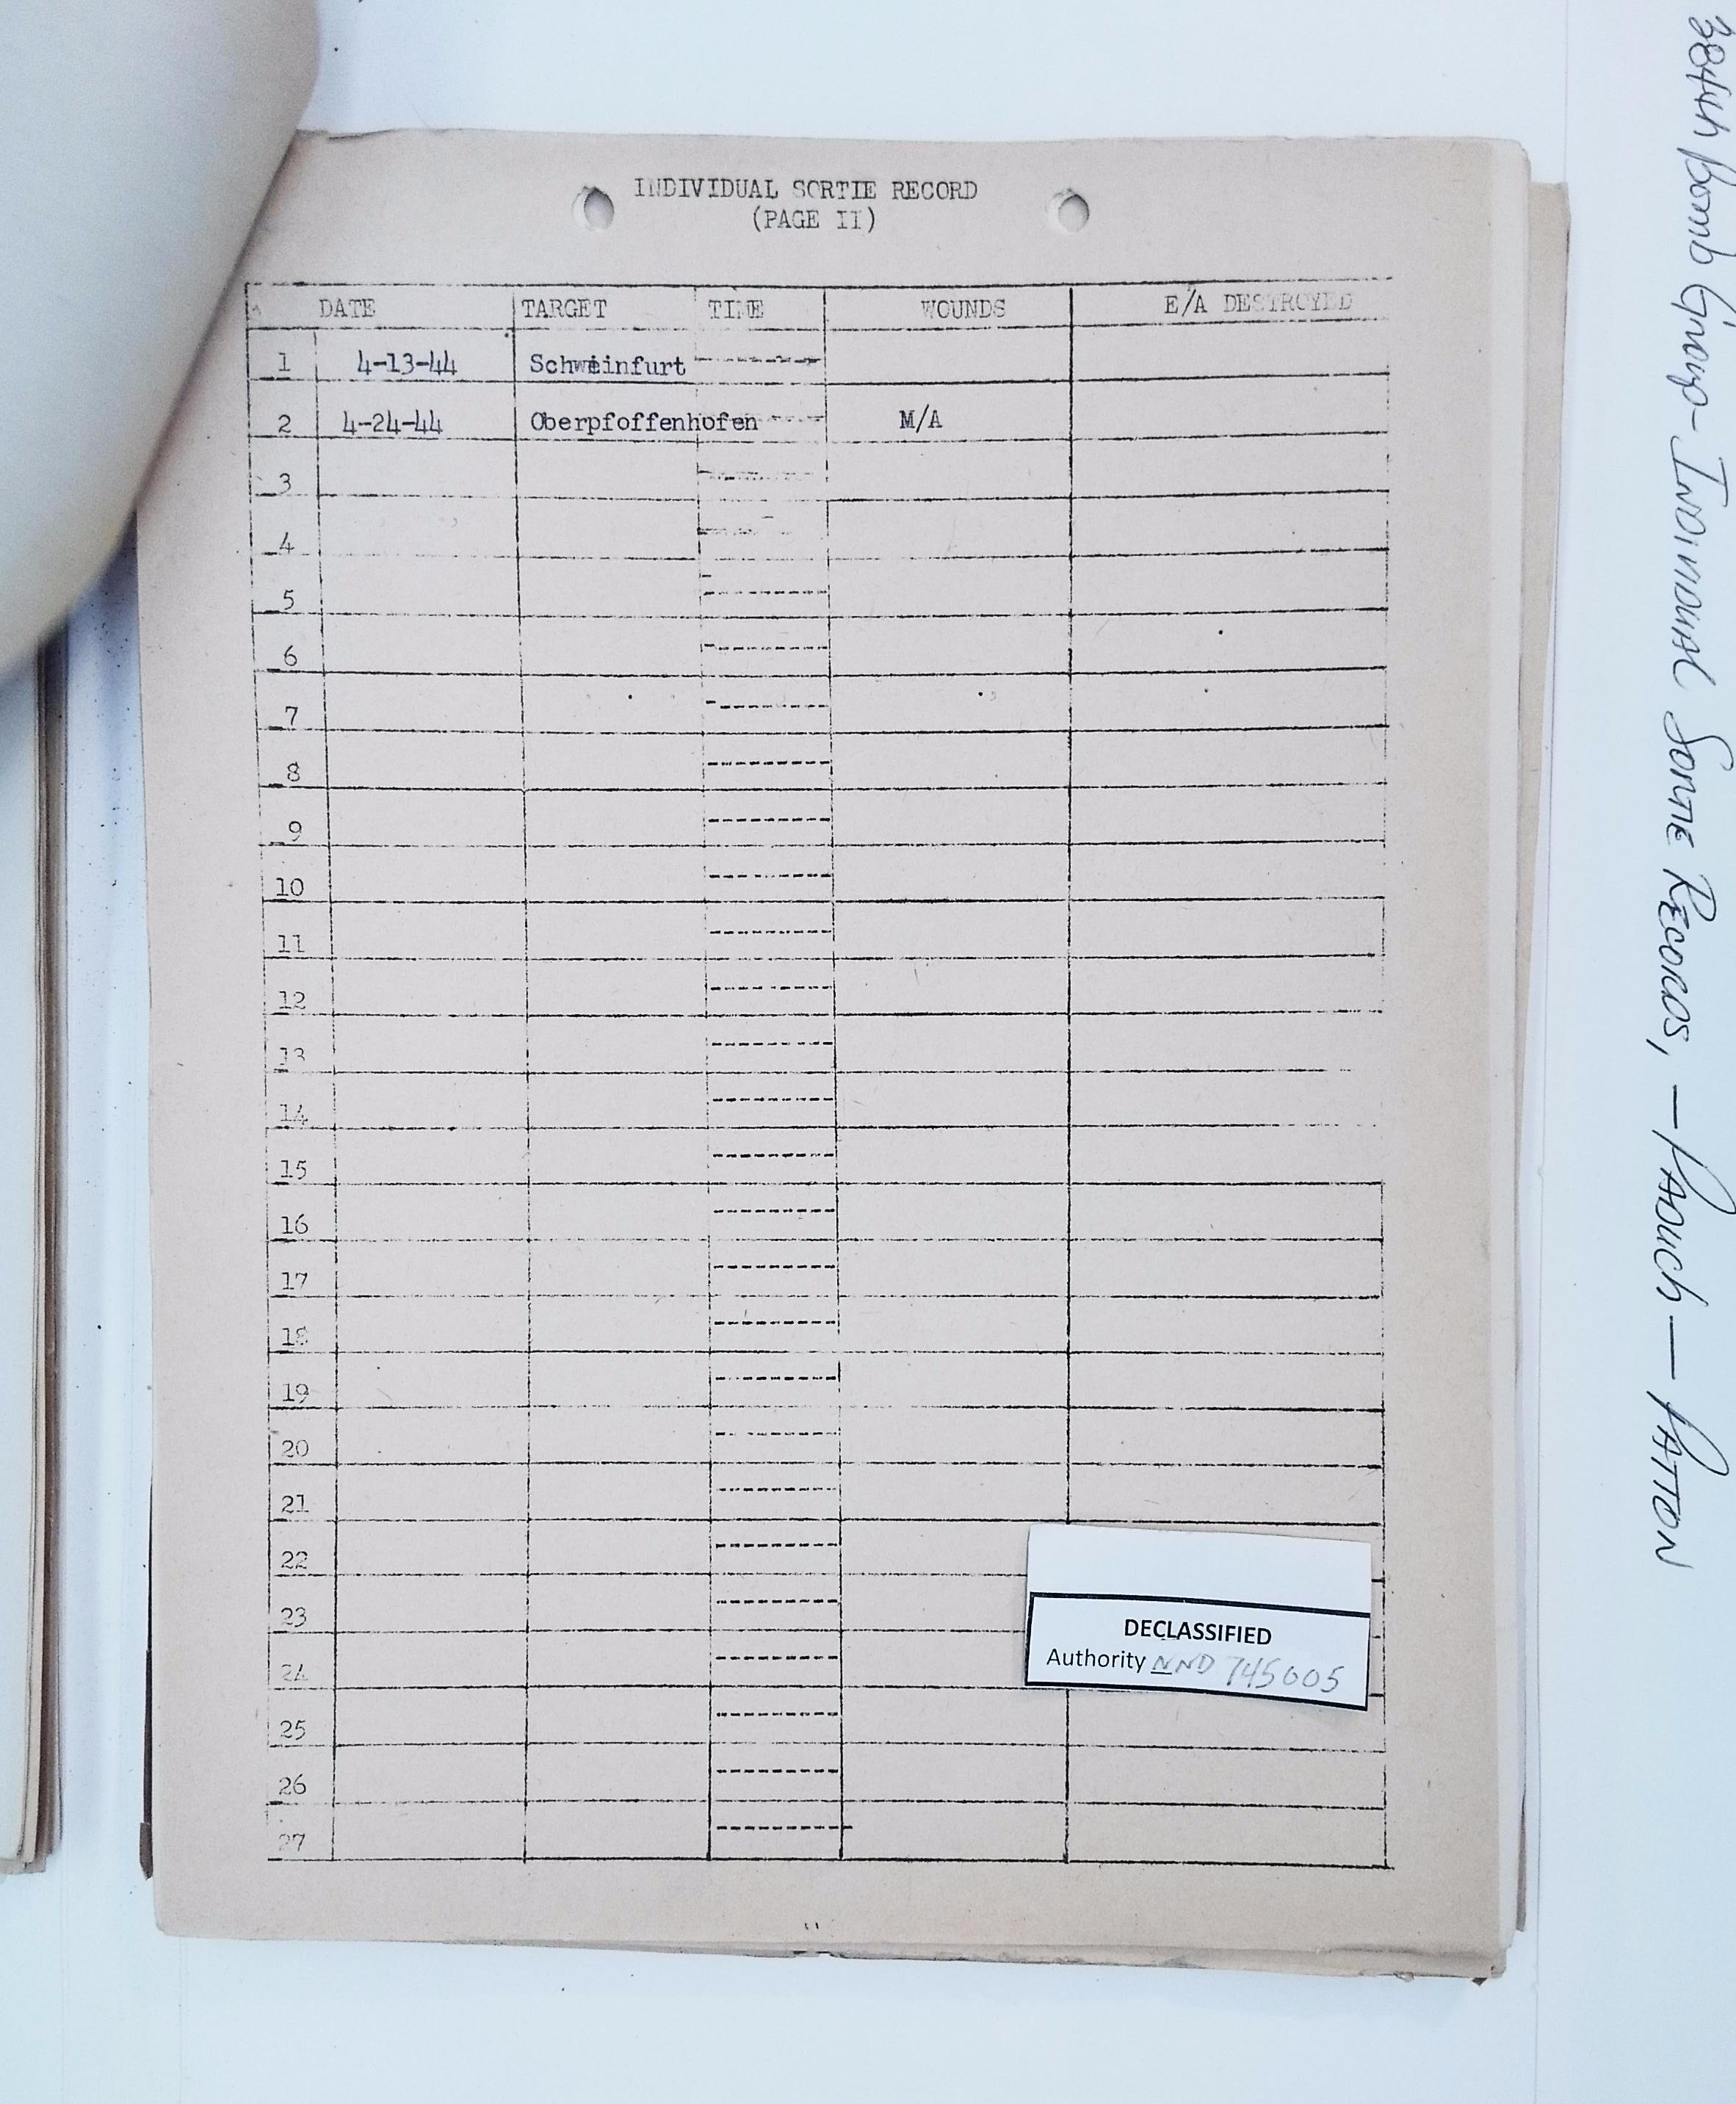 INDIVIDUAL SORTIE RECORD
(PAGE II)
DATE TARGET TIME WOUNDS E/A DESTROYED
1 4-13-44 Schweinfurt
2 4-24-44 Oberpfoffenhofen M/A
3
4
5
6
7
8
9
10
11
12
13
14
15
16
17
18
19
20
21
22
23
24
25
26
27
DECLASSIFIED
Authority NND 745005
384th Bomb Group - Individual Sortie Records, - Paduch - Patton